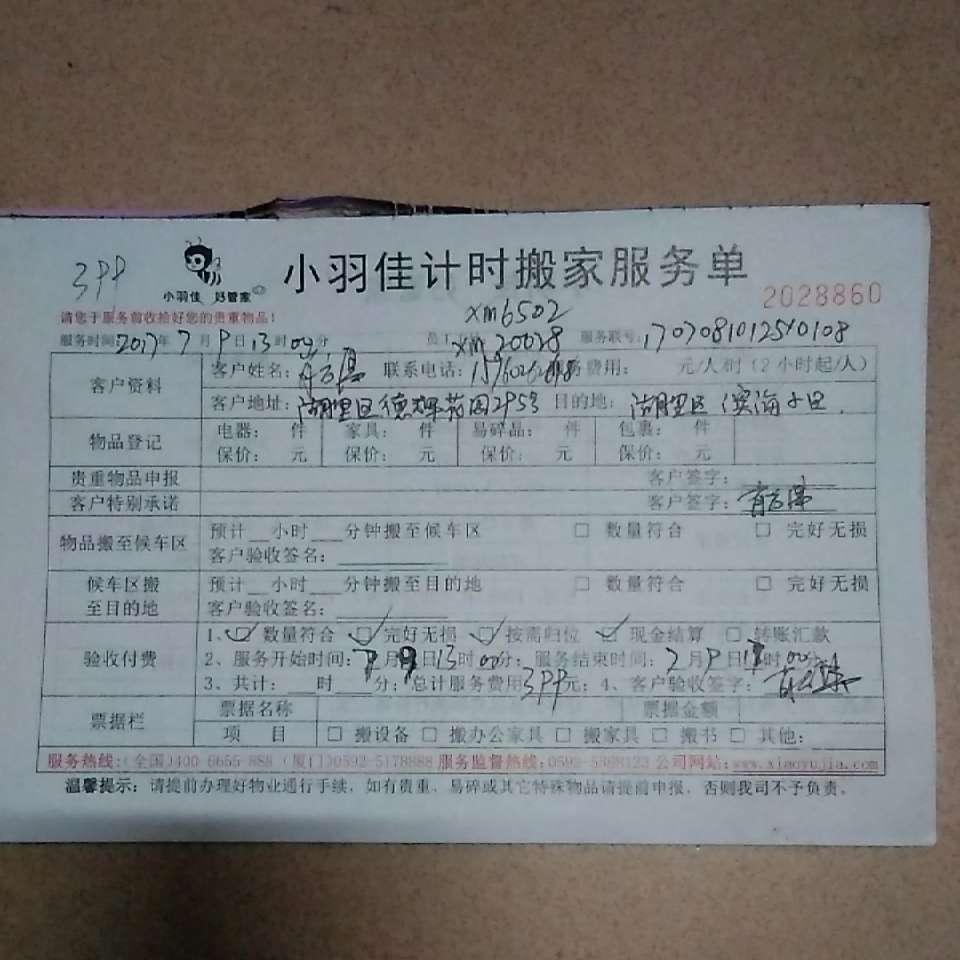 399
小羽佳 好管家
小羽佳计时搬家服务单
2028860
请您于服务前收拾好您的贵重物品!
xm6502
服务时间:2017年7月9日13时00分 员工 xm20028 服务联号:1707081012540108
客户资料
客户姓名: 联系电话: 服务费用: 元/人/时(2小时起/人)
客户地址:湖里区德辉花园295号 目的地: 湖里区
物品登记
电器: 件 家具: 件 易碎品: 件 包裹: 件
保价: 元 保价: 元 保价: 元 保价: 元
贵重物品申报 客户签字:
客户特别承诺 客户签字:
物品搬至候车区
预计__小时___分钟搬至候车区 □ 数量符合 □ 完好无损
客户验收签名:
候车区搬至目的地
预计__小时___分钟搬至目的地 □ 数量符合 □ 完好无损
客户验收签名:
验收付费
1、☑ 数量符合 ☑ 完好无损 ☑ 按需归位 ☑ 现金结算 □ 转账汇款
2、服务开始时间:7月9日13时00分; 服务结束时间:7月9日 时00分;
3、共计: 时 分;总计服务费用399元; 4、客户验收签字:
票据栏
票据名称 票据金额
项 目 □ 搬设备 □ 搬办公家具 □ 搬家具 □ 搬书 □ 其他:
服务热线:(全国)400-6655-888 (厦门)0592-5178888 服务监督热线:0592-5368123 公司网站:www.xiaoyujia.com
温馨提示: 请提前办理好物业通行手续, 如有贵重、易碎或其它特殊物品请提前申报, 否则我司不予负责。